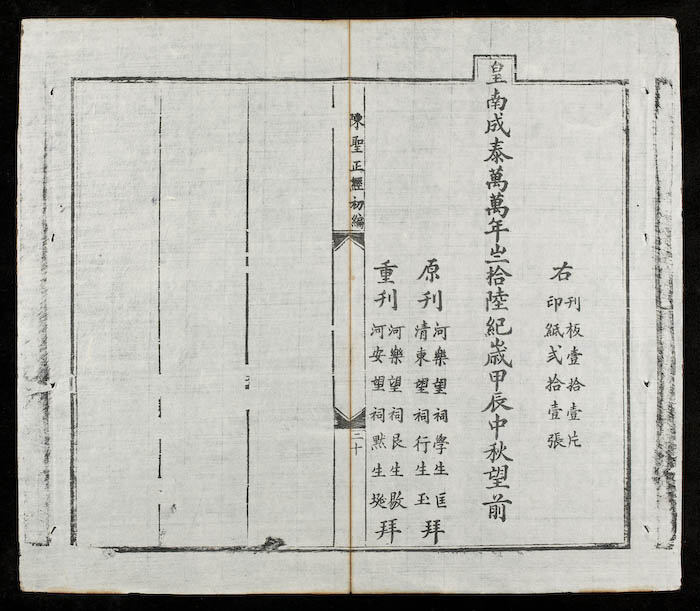 右
刊板壹拾壹片
印紙弍拾壹張
皇南成泰萬萬年之拾陸紀歲甲辰中秋望前
原刊
河樂望祠學生匡
清東望祠行生玉
拜
重刊
河樂望祠艮生
河安望祠黙生
拜
陳聖正經初編
二十